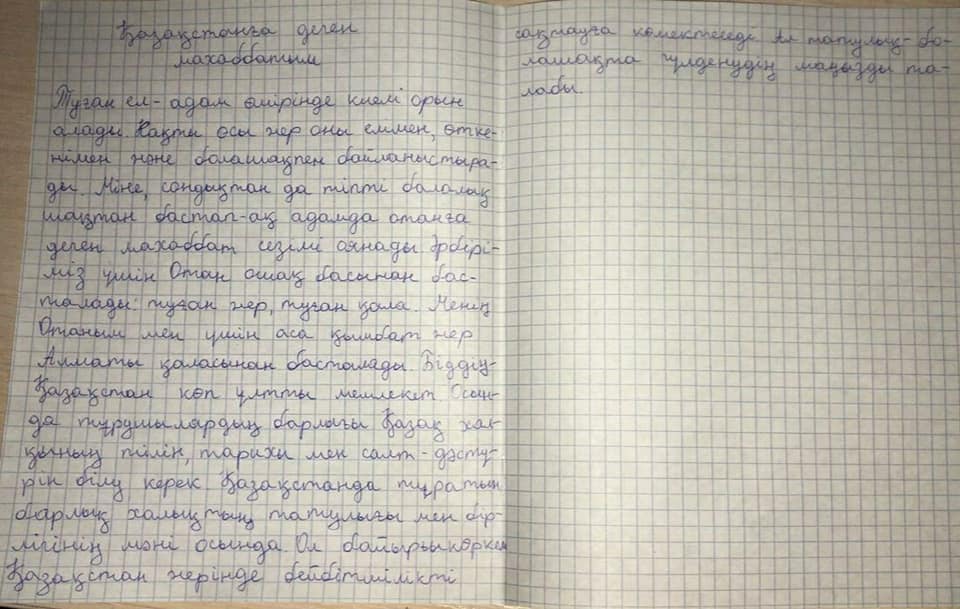 Қазақстанға деген
махаббатым
Туған ел- адам өмірінде киелі орын
алады. Нақты осы жер оны елмен, өтке-
німен және болашақпен байланыстыра-
ды. Міне, сондықтан да тіпті балалық
шақтан бастап-ақ адамда отанға
деген махаббат сезімі оянады Әрбірі-
міз үшін Отан ошақ басынан бас-
талады: туған жер, туған қала. Менің
Отаным мен үшін аса қымбат жер
Алматы қаласынан басталады. Біздің
Қазақстан көп ұлтты мемлекет. Осын-
да тұрушылардың барлығы Қазақ хал-
қының тілін, тарихы мен салт-дәстү-
рін білу керек Қазақстанда тұратын
барлық халықтың татулығы мен бір-
лігінің мәні осында. Ол байырғы көркем
Қазақстан жерінде бейбітшілікті
сақтауға көмектеседі Ал татулық- бо-
лашақта гүлденудің маңызды та-
лабы.